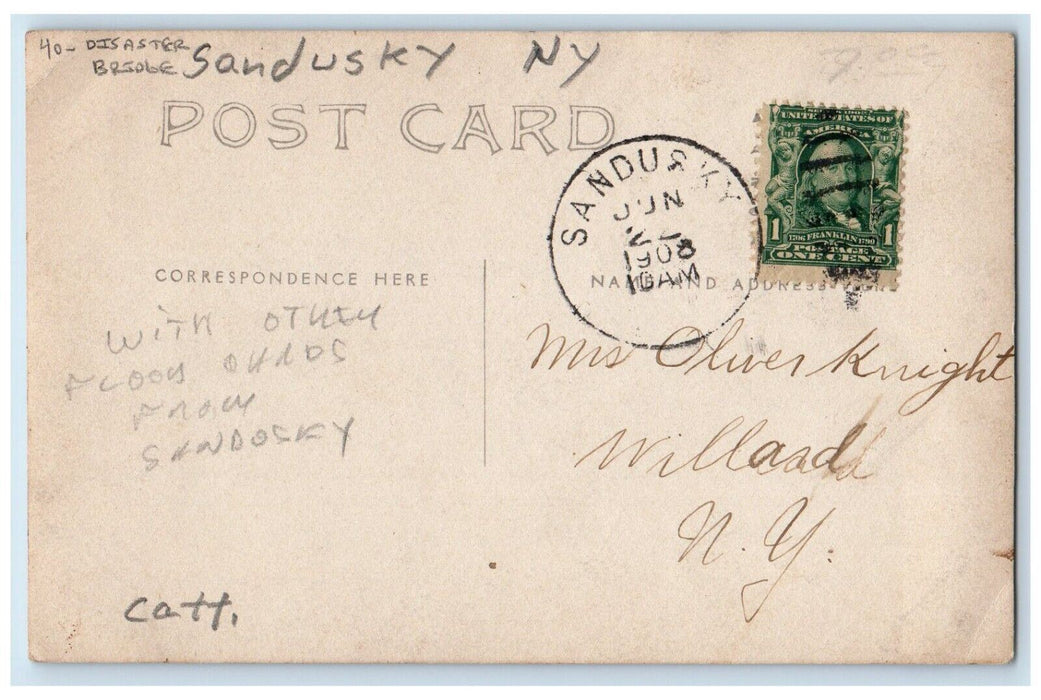 40- DISASTER
BRIDGE
Sandusky NY
POST CARD
UNITED STATES OF
AMERICA
1706 FRANKLIN 1790
1 1
POSTAGE
ONE CENT
SANDUSKY
JUN
1908
10 AM
CORRESPONDENCE HERE
NAME AND ADDRESS HERE
WITH OTHER
FLOOD CARDS
FROM
SANDUSKY
Mrs Oliver Knight
Willard
N. Y.
Catt.